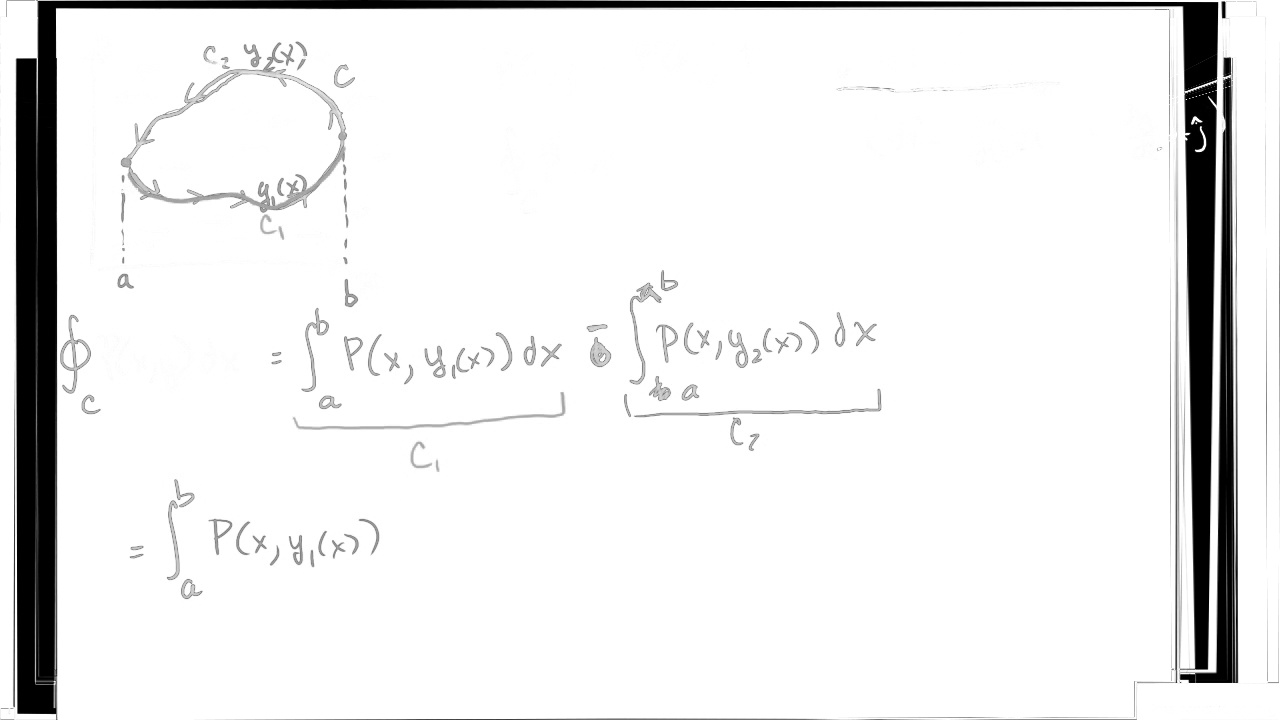 C₂ y₂(x)
C
y₁(x)
C₁
a
b
ĵ
∮_C = ∫_a^b P(x, y₁(x)) dx − ∫_a^b P(x, y₂(x)) dx
C₁ C₂
= ∫_a^b P(x, y₁(x))